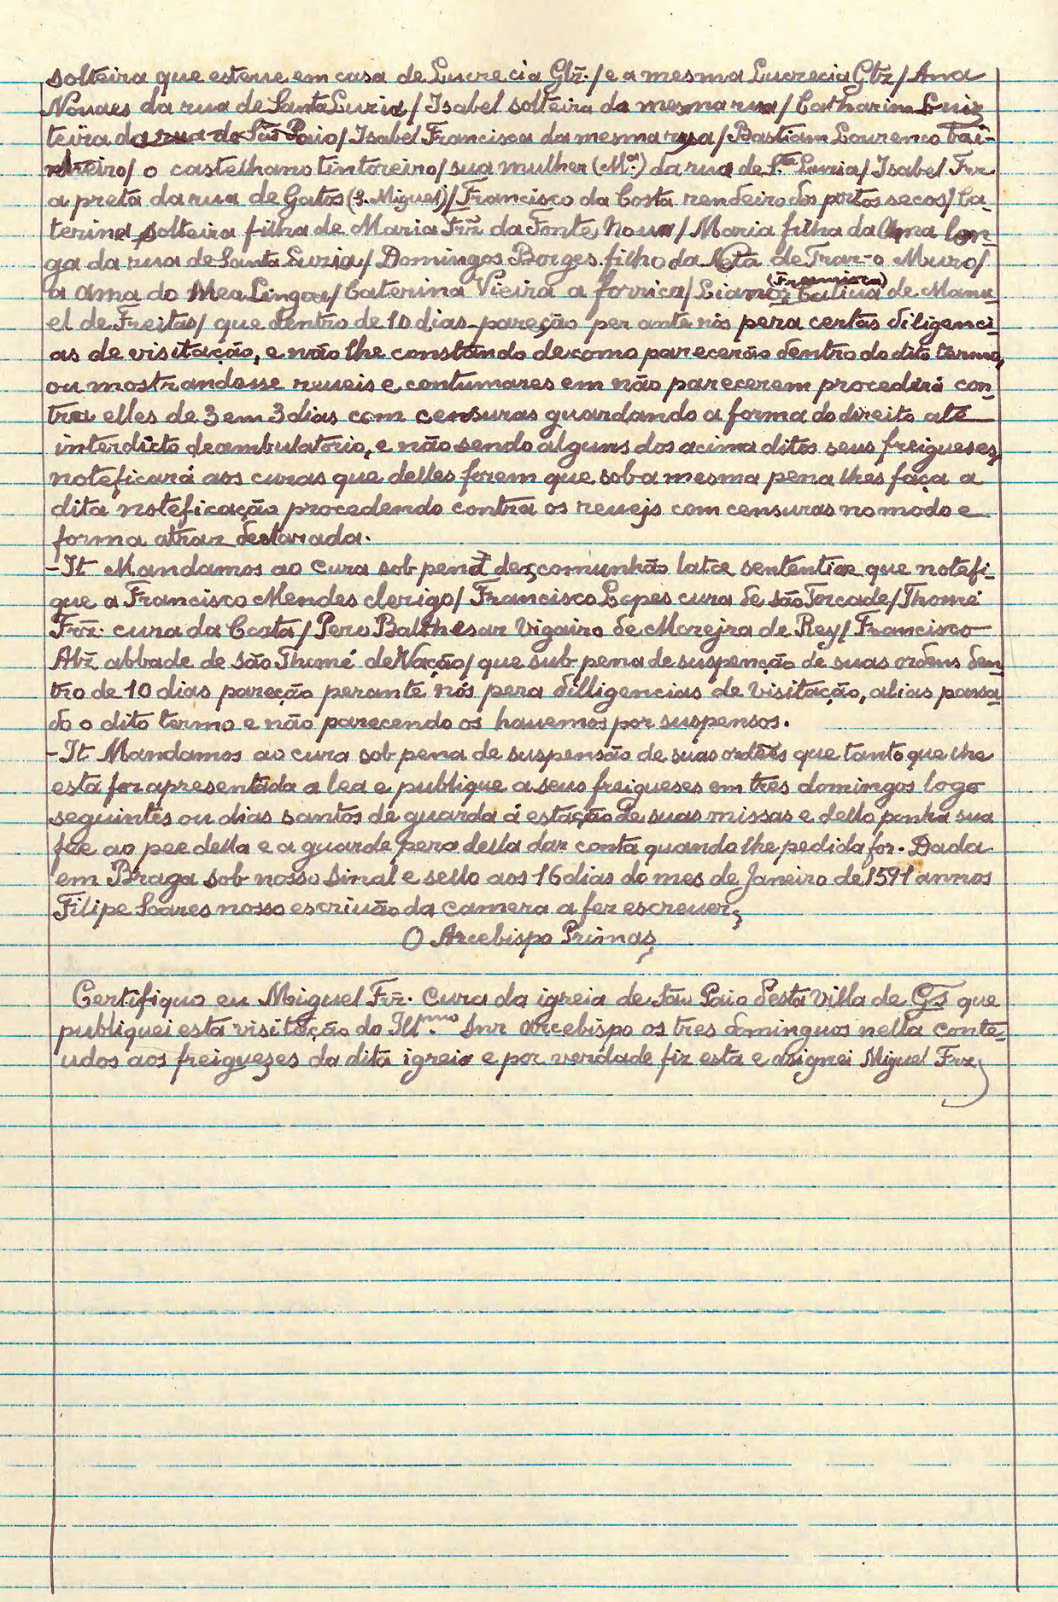 solteira que esteue em casa de Lucrecia Glz̃./ e a mesma Lucrecia Glz̃/ Ana
Nouaes da rua de Santa Luzia/ Isabel solteira da mesma rua/ Catharina Luiz
teira da rua de São Paio/ Isabel Francisca da mesma rua/ Bastiam Lourenco Tai-
nheiro/ o castelhano tintoreiro/ sua mulher (Mª.) da rua de S.ta Luzia/ Isabel Frz
a preta da rua de Gatos (S. Miguel)/ Francisco da Costa rendeiro dos portos secos/ Ca-
terina solteira filha de Maria Frz̃ da Fonte Noua/ Maria filha da Ama lon-
ga da rua de Santa Luzia/ Domingos Borges filho da Nota de Traz-o Muro/
a Ama do Mea Lingoa/ Caterina Vieira a forrica/ (Francisca) de Manu-
el de Freitas/ que dentro de 10 dias pareção per ante nós pera certas diligenci-
as de visitação, e não lhe constando de como parecerão dentro do dito termo,
ou mostrandosse reueis e contumazes em não parecerem procederá con-
tra elles de 3 em 3 dias com censuras guardando a forma do direito até
interdicto deambulatorio, e não sendo alguns dos acima ditos seus freigueses,
noteficará aos curas que delles forem que sob a mesma pena lhes faça a
dita noteficação procedendo contra os reuejs com censuras no modo e
forma atraz declarada.
-It Mandamos ao cura sob pena de excomunhão latae sententiae que notefi-
que a Francisco Mendes clerigo/ Francisco Lopes cura de são Torcade/ Thomé
Frz̃. cura da Costa/ Pero Balthesar Vigairo de Morejra de Rey/ Francisco
Alz̃ abbade de são Thomé de Vação/ que sub pena de suspenção de suas ordens den-
tro de 10 dias pareção perante nós pera dilligencias de visitação, alias passa-
do o dito termo e não parecendo os hauemos por suspensos.
-It Mandamos ao cura sob pena de suspensão de suas ordens que tanto que lhe
esta for apresentada a lea e publique a seus freigueses em tres domingos logo
seguintes ou dias santos de guarda á estação de suas missas e dello ponha sua
fee ao pee della e a guarde pera della dar conta quando lhe pedida for. Dada
em Braga sob nosso sinal e sello aos 16 dias do mes de Janeiro de 1591 annos
Filipe Soares nosso escriuão da camera a fez escreuer;
O Arcebispo Primas;
Certifiquo eu Miguel Frz̃. Cura da igreia de São Paio desta Villa de Gs̃ que
publiquei esta visitação do Ill.mo Snr Arcebispo os tres dominguos nella conte-
udos aos freiguezes da dita igreia e por verdade fiz esta e asignei Miguel Frz